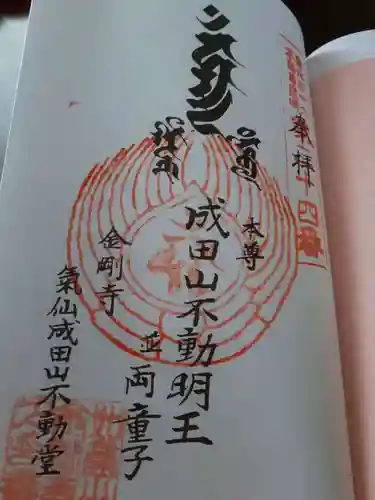 奉拝
十四番
本尊
成田山不動明王
並両童子
金剛寺
氣仙成田山不動堂